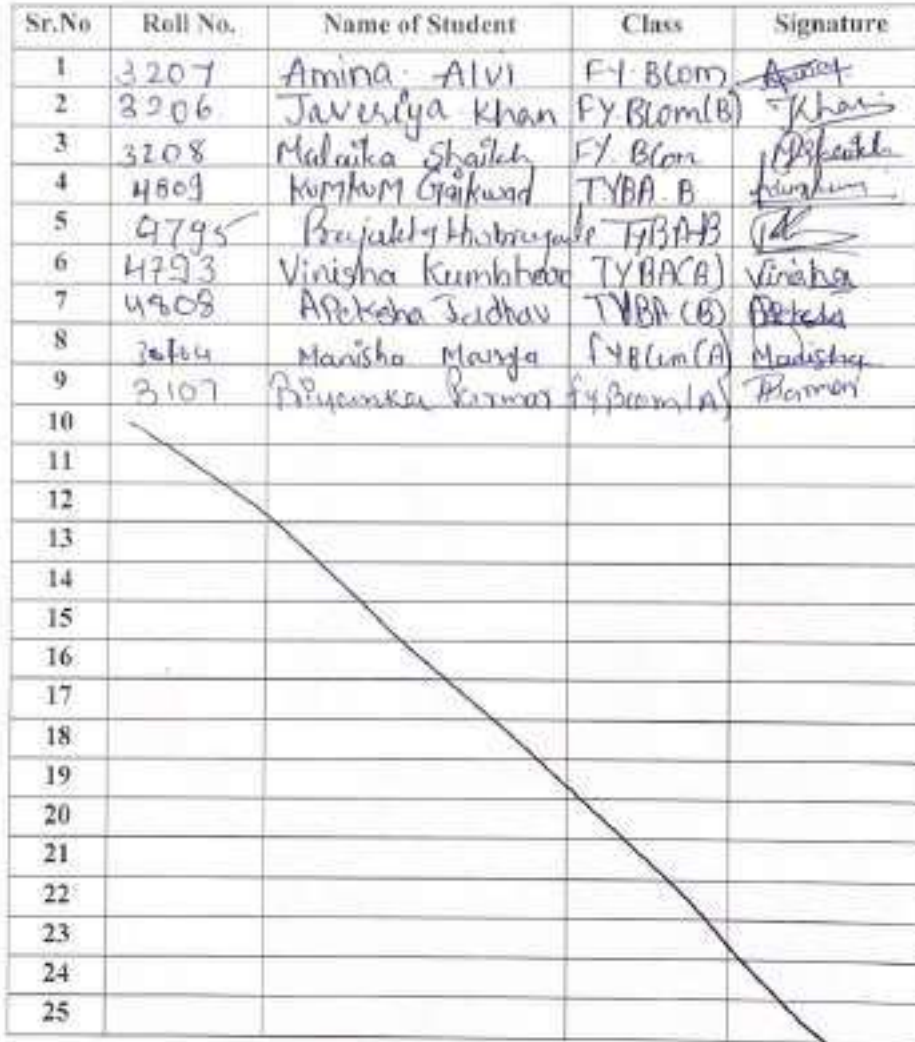 Sr.No Roll No. Name of Student Class Signature
1 3207 Amina Alvi FY. BCom
2 3206 Javeriya Khan FY BCom(B) Khan
3 3208 Malaika Shaikh FY. BCom
4 4809 KUMKUM Gaikwad TYBA. B
5 TYBA-B
6 4793 Vinisha Kumbhar TYBA(A) Vinisha
7 4808 Apeksha Jadhav TYBA (B) Apeksha
8 Manisha FYBCom(A)
9 3107 Priyanka Parmar FyBcom(A) Parmar
10
11
12
13
14
15
16
17
18
19
20
21
22
23
24
25